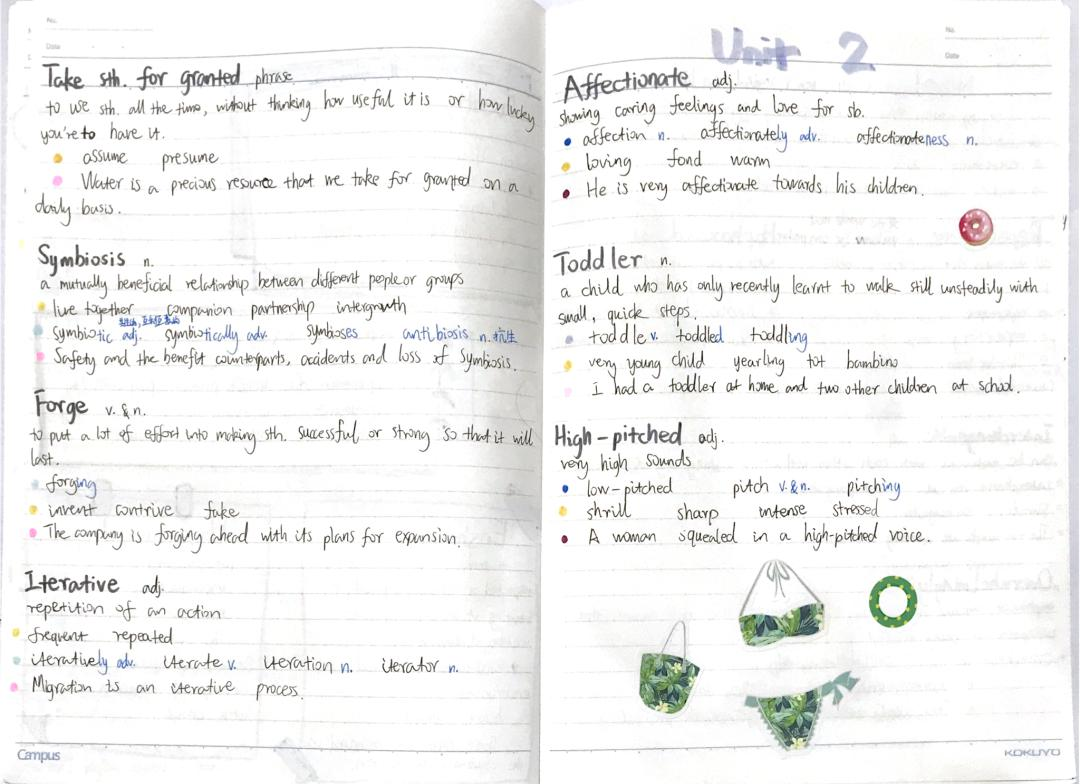 No.
Date
Take sth. for granted phrase
to use sth. all the time, without thinking how useful it is or how lucky
you're to have it.
assume presume
Water is a precious resource that we take for granted on a
daily basis.
Symbiosis n.
a mutually beneficial relationship between different people or groups
live together companion partnership intergrowth
symbiotic adj. symbiotically adv. symbioses antibiosis n. 抗生
Safety and the benefit counterparts, accidents and loss of symbiosis.
Forge v. & n.
to put a lot of effort into making sth. successful or strong so that it will
last.
forging
invent contrive fake
The company is forging ahead with its plans for expansion.
Iterative adj.
repetition of an action
frequent repeated
iteratively adv. iterate v. iteration n. iterator n.
Migration is an iterative process.
Campus
Unit 2
No.
Date
Affectionate adj.
showing caring feelings and love for sb.
affection n. affectionately adv. affectionateness n.
loving fond warm
He is very affectionate towards his children.
Toddler n.
a child who has only recently learnt to walk still unsteadily with
small, quick steps.
toddle v. toddled toddling
very young child yearling tot bambino
I had a toddler at home and two other children at school.
High-pitched adj.
very high sounds
low-pitched pitch v. & n. pitching
shrill sharp intense stressed
A woman squealed in a high-pitched voice.
KOKUYO